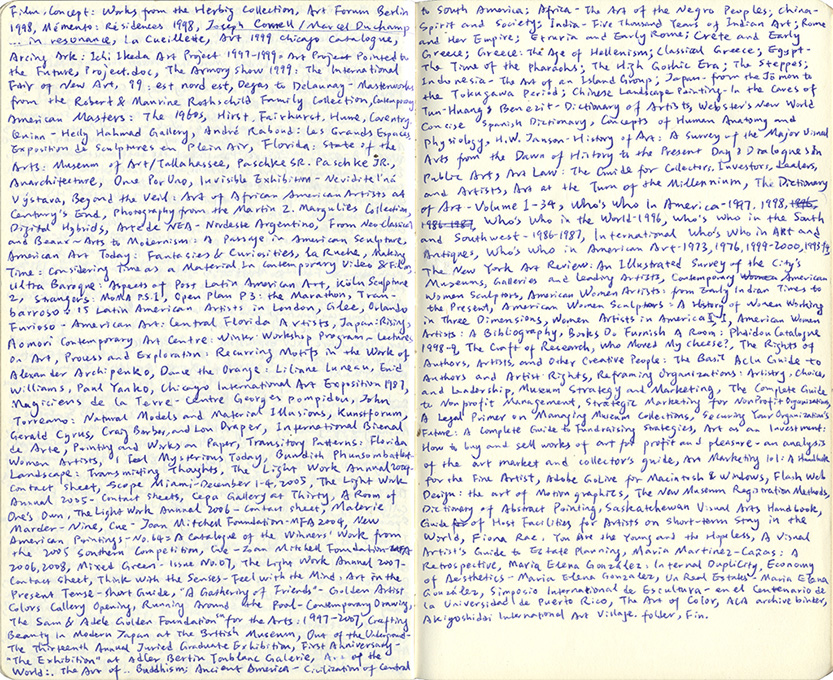 Film. Concept: Works from the Herbig Collection, Art Forum Berlin
1998, Mémento: Résidences 1998, Joseph Cornell/Marcel Duchamp
... in resonance, La Cueillette, Art 1999 Chicago Catalogue,
Arcing Ark: Ichi Ikeda Art Project 1997-1999 - Art Project Pointed to
the Future, Project.doc, The Armory Show 1999: The International
Fair of New Art, 99: est nord est, Degas to Delaunay - Masterworks
from the Robert & Maurine Rothschild Family Collection, Contemporary
American Masters: The 1960s, Hirst, Fairhurst, Hume, Coventry,
Quinn - Holly Hahmad Gallery, André Raboud: Les Grands Espaces
Exposition de Sculptures en Plein Air, Florida: State of the
Arts: Museum of Art/Tallahassee, Paschke SR. Paschke JR.,
Anarchitecture, One Por Uno, Invisible Exhibition - Neviditelná
Výstava, Beyond the Veil: Art of African American Artists at
Century's End, Photography from the Martin Z. Margulies Collection,
Digital Hybrids, Arte de NEA - Nordeste Argentino, From Neo Classical
and Beaux-Arts to Modernism: A Passage in American Sculpture,
American Art Today: Fantasies & Curiosities, La Ruche, Making
Time: Considering Time as a Material in Contemporary Video & Film,
Ultra Baroque: Aspects of Post Latin American Art, Köln Sculpture
2, Strangers: MoMA P.S.1, Open Plan P3: the Marathon, Tran-
barroso: 15 Latin American Artists in London, Glee, Orlando
Furioso - American Art: Central Florida Artists, Japan: Rising,
Aomori Contemporary Art Centre: Winter Workshop Program - Lectures
on Art, Process and Exploration: Recurring Motifs in the Work of
Alexander Archipenko, Dance the Orange: Liliane Luneau, Enid
Williams, Paul Yanko, Chicago International Art Exposition 1987,
Magiciens de la Terre - Centre Georges Pompidou, John
Torreano: Natural Models and Material Illusions, Kunstforum,
Gerald Cyrus, Craig Barber, and Lou Draper, International Bienal
de Arte, Painting and Works on Paper, Transitory Patterns: Florida
Women Artists, I Feel Mysterious Today, Bundith Phunsombatlert
Landscape: Transmitting Thoughts, The Light Work Annual 2004-
Contact Sheet, Scope Miami - December 1-4, 2005, The Light Work
Annual 2005 - Contact Sheets, Cepa Gallery at Thirty, A Room of
One's Own, The Light Work Annual 2006 - Contact sheet, Malerie
Marder - Nine, Cue - Joan Mitchell Foundation - MFA 2004, New
American Paintings - No. 64: A Catalogue of the Winners' Work from
the 2005 Southern Competition, Cue - Joan Mitchell Foundation MFA
2006, 2008, Mixed Green - Issue No. 07, The Light Work Annual 2007-
Contact Sheet, Think with the Senses - Feel with the Mind: Art in the
Present Tense - Short Guide, "A Gathering of Friends" - Golden Artist
Colors Gallery Opening, Running Around the Pool - Contemporary Drawing,
The Sam & Adele Golden Foundation for the Arts: 1997-2007, Crafting
Beauty in Modern Japan at The British Museum, Out of the Underground-
The Thirteenth Annual Juried Graduate Exhibition, First Anniversary-
"The Exhibition" at Adler Bertin Toublanc Galerie, Art of the
World: The Art of.. Buddhism; Ancient America - Civilization of Central
to South America; Africa - The Art of the Negro Peoples; China -
Spirit and Society; India - Five Thousand Years of Indian Art; Rome
and Her Empire; Etruria and Early Rome; Crete and Early
Greece; Greece: The Age of Hellenism; Classical Greece; Egypt -
The Time of the Pharaohs; The High Gothic Era; The Steppes;
Indonesia - The Art of an Island Group; Japan - from the Jōmon to
the Tokugawa Period; Chinese Landscape Painting - In the Caves of
Tun-Huang; Benezit - Dictionary of Artists, Webster's New World
Concise Spanish Dictionary, Concepts of Human Anatomy and
Physiology, H.W. Janson - History of Art: A Survey of the Major Visual
Arts from the Dawn of History to the Present Day; Dialogues in
Public Art, Art Law: The Guide for Collectors, Investors, Dealers,
and Artists, Art at the Turn of the Millennium, The Dictionary
of Art - Volume 1-34, Who's Who in America - 1997, 1998, 1996,
1986-1987, Who's Who in the World - 1996, Who's Who in the South
and Southwest - 1986-1987, International Who's Who in Art and
Antiques, Who's Who in American Art - 1973, 1976, 1999-2000, 1993-94
The New York Art Review: An Illustrated Survey of the City's
Museums, Galleries and Leading Artists, Contemporary Women American
Women Sculptors, American Women Artists: from Early Indian Times to
the Present, American Women Sculptors: A History of Women Working
in Three Dimensions, Women Artists in America I-I, American Women
Artists: A Bibliography, Books Do Furnish A Room: Phaidon Catalogue
1998-9, The Craft of Research, Who Moved My Cheese?, The Rights of
Authors, Artists, and Other Creative People: The Basic ACLU Guide to
Authors and Artist Rights, Reframing Organizations: Artistry, Choice,
and Leadership, Museum Strategy and Marketing, The Complete Guide
to Nonprofit Management, Strategic Marketing for NonProfit Organizations,
A Legal Primer on Managing Museum Collections, Securing Your Organization's
Future: A Complete Guide to Fundraising Strategies, Art as an Investment:
How to buy and sell works of art for profit and pleasure - an analysis
of the art market and collector's guide, Art Marketing 101: A Handbook
for the Fine Artist, Adobe GoLive for Macintosh & Windows, Flash Web
Design: the art of Motion graphics, The New Museum Registration Methods,
Dictionary of Abstract Painting, Saskatchewan Visual Arts Handbook,
Guide of Host Facilities for Artists on Short-term Stay in the
World, Fiona Rae. You Are the Young and the Hopeless, A Visual
Artist's Guide to Estate Planning, Maria Martinez-Cañas: A
Retrospective, Maria Elena González: Internal Duplicity, Economy
of Aesthetics - Maria Elena González, Un Real Estates - Maria Elena
González, Simposio International de Escultura - en el Centenario de
la Universidad de Puerto Rico, The Art of Color, ACA archive binder,
Akiyoshidai International Art Village. folder, Fin.